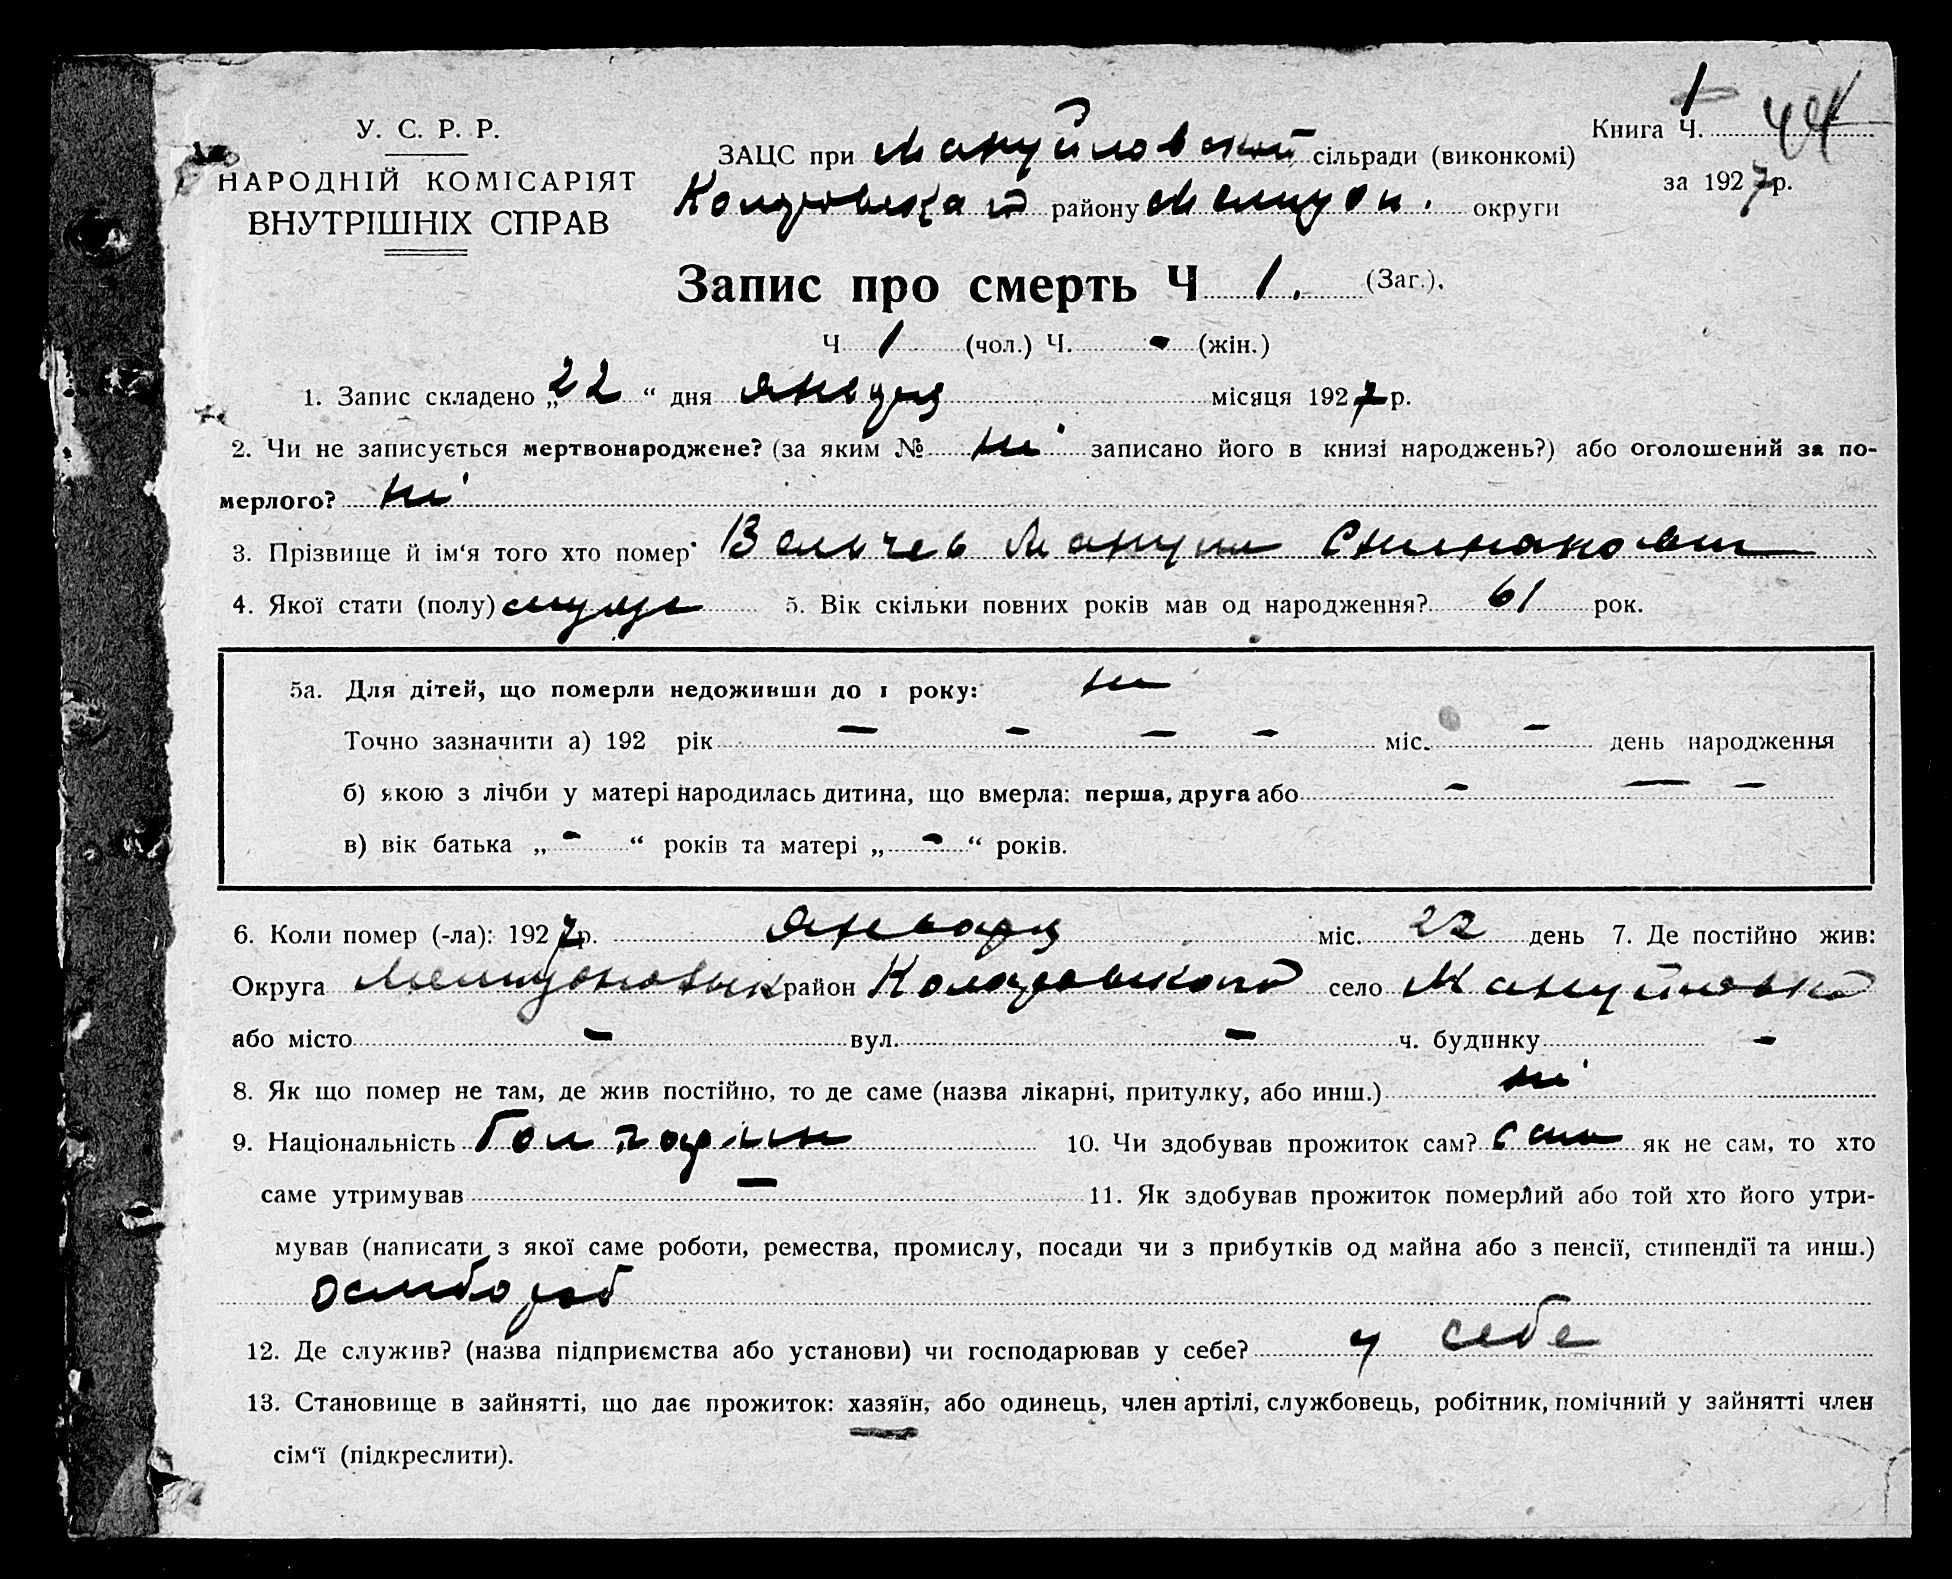 У. С. Р. Р.
НАРОДНІЙ КОМІСАРІЯТ
ВНУТРІШНІХ СПРАВ
ЗАЦС при Мануйловской сільради (виконкомі)
району округи
Книга Ч. 1
за 1927 р.
Запис про смерть Ч 1. (Заг.).
Ч 1 (чол.) Ч. - (жін.)
1. Запис складено „22“ дня января місяця 1927 р.
2. Чи не записується мертвонароджене? (за яким № ні записано його в книзі народжень?) або оголошений за по-
мерлого? ні
3. Прізвище й ім‘я того хто помер Вельчев Мануил
4. Якої стати (полу) 5. Вік скільки повних років мав од народження? 61 рок.
5а. Для дітей, що померли недоживши до 1 року: ни
Точно зазначити а) 192 рік — - — - міс. - день народження
б) якою з лічби у матері народилась дитина, що вмерла: перша, друга або - — -
в) вік батька „-“ років та матері „-“ років.
6. Коли помер (-ла): 1927 р. января міс. 22 день 7. Де постійно жив:
Округа район село
або місто - вул. - ч. будинку -
8. Як що помер не там, де жив постійно, то де саме (назва лікарні, притулку, або инш.) ні
9. Національність Болгарин 10. Чи здобував прожиток сам? сам як не сам, то хто
саме утримував — 11. Як здобував прожиток померлий або той хто його утри-
мував (написати з якої саме роботи, ремества, промислу, посади чи з прибутків од майна або з пенсії, стипендії та инш.)
12. Де служив? (назва підприємства або установи) чи господарював у себе? у себе
13. Становище в зайнятті, що дає прожиток: хазяїн, або одинець, член артілі, службовець, робітник, помічний у зайнятті член
сім‘ї (підкреслити).